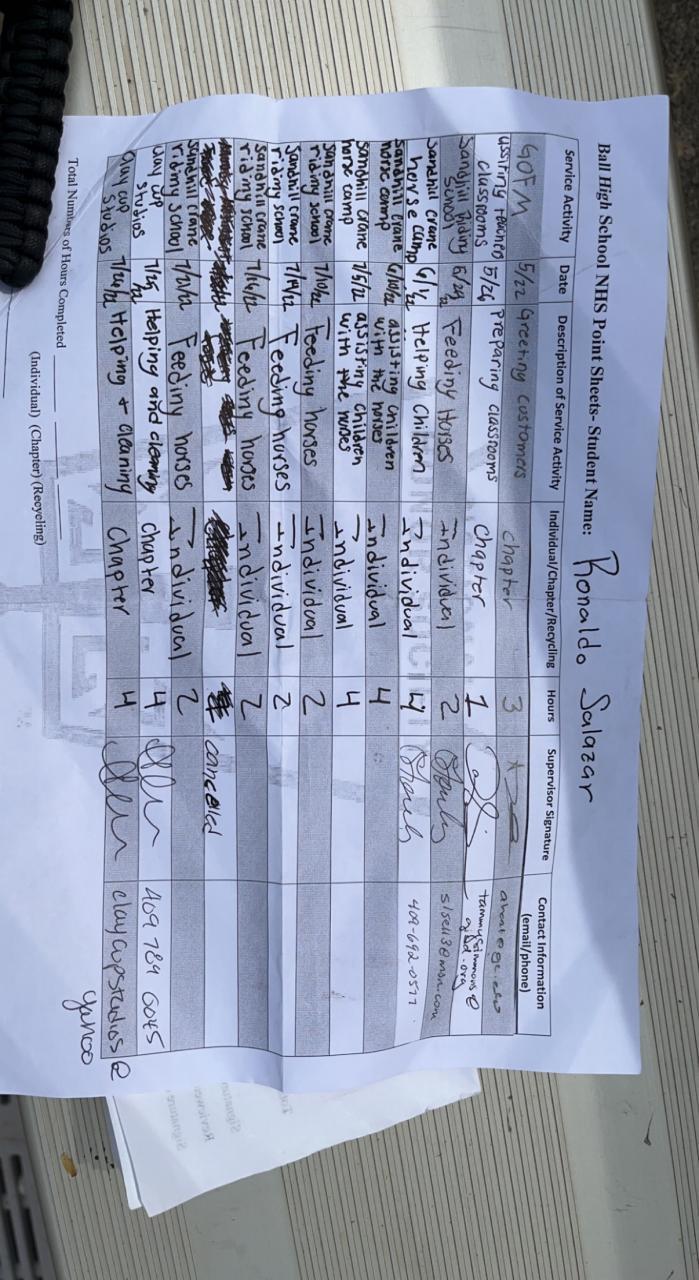 Ball High School NHS Point Sheets- Student Name: Ronaldo Salazar
Service Activity Date Description of Service Activity Individual/Chapter/Recycling Hours Supervisor Signature Contact Information
(email/phone)
GOFM 5/22 Greeting customers chapter 3
assiting teacher 5/26 Preparing classrooms chapter 1 tammysimmons@
classrooms gisd.org
Sandhill Riding 5/29 Feeding Horses Individual 2
School
Sandhill Crane 6/1/22 Helping Children Individual 4 409-692-0577
horse camp
Sandhill Crane 6/10/22 assisting children Individual 4
horse camp with the horses
Sandhill Crane 7/5/22 assisting children Individual 4
horse camp with the horses
Sandhill crane 7/10/22 Feeding horses Individual 2
riding school
Sandhill crane 7/14/22 Feeding horses Individual 2
riding school
Sandhill crane 7/16/22 Feeding horses Individual 2
riding school
canceled
Sandhill crane 7/21/22 Feeding horses Individual 2
riding school
Clay cup 7/25/22 Helping and cleaning chapter 4 409 789 6045
studios
Clay cup 7/26/22 Helping + cleaning Chapter 4 claycupstudios@
studios yahoo
Total Numbers of Hours Completed
(Individual) (Chapter) (Recycling)